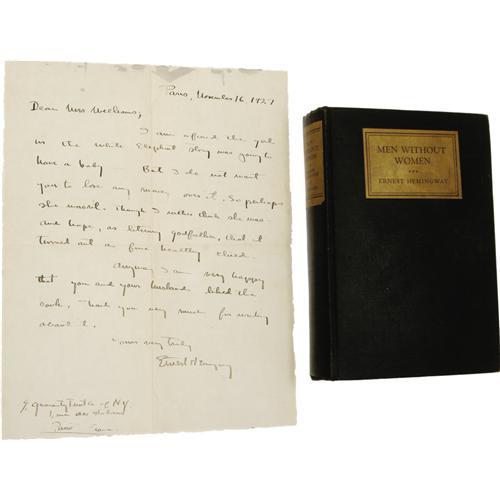 Paris, November 16, 1927
Dear Mrs. Williams,
I am afraid the girl
in the White Elephant story was going to
have a baby — But I do not want
you to lose any money over it. So perhaps
she wasn't. Though I rather think she was
and hope, as literary godfather, that it
turned out a fine healthy child.
Anyway I am very happy
that you and your husband liked the
book. Thank you very much for writing
about it.
Yours very truly
Ernest Hemingway
Guaranty Trust Co of N.Y.
1, rue des Italiens
Paris France
MEN WITHOUT
WOMEN
ERNEST HEMINGWAY